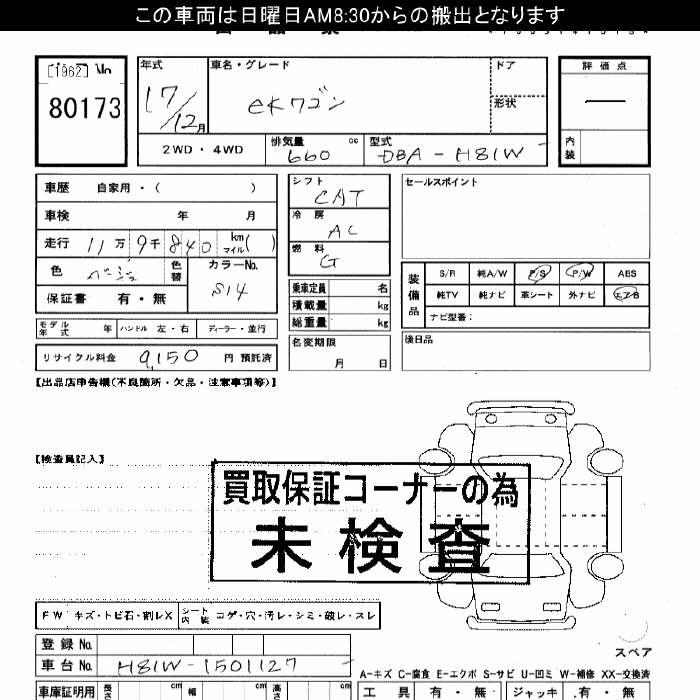 この車両は日曜日AM8:30からの搬出となります
[1962] No
80173
年式
17/12月
車名・グレード
eKワゴン
ドア
形状
2WD・4WD
排気量 660 cc
型式 DBA-H81W
評価点
内装
車歴 自家用・( )
車検 年 月
走行 11万9千840 km マイル( )
色 ベージュ 色替
カラーNo. S14
保証書 有・無
モデル年式 年 ハンドル 左・右 ディーラー・並行
リサイクル料金 9,150 円 預託済
シフト CAT
冷房 AC
燃料 G
乗車定員 名
積載量 kg
総重量 kg
名変期限
月 日
セールスポイント
装備品
S/R 純A/W P/S P/W ABS
純TV 純ナビ 革シート 外ナビ エアB
ナビ型番:
後日品
【出品店申告欄(不良箇所・欠品・注意事項等)】
【検査員記入】
買取保証コーナーの為
未検査
FW キズ・トビ石・割レX シート内装 コゲ・穴・汚レ・シミ・破レ・スレ
登録No.
車台No. H81W-1501127
スペア
A-キズ C-腐食 E-エクボ S-サビ U-凹ミ W-補修 XX-交換済
車庫証明用 長さ cm 幅 cm 高さ cm
工具 有・無 ジャッキ 有・無